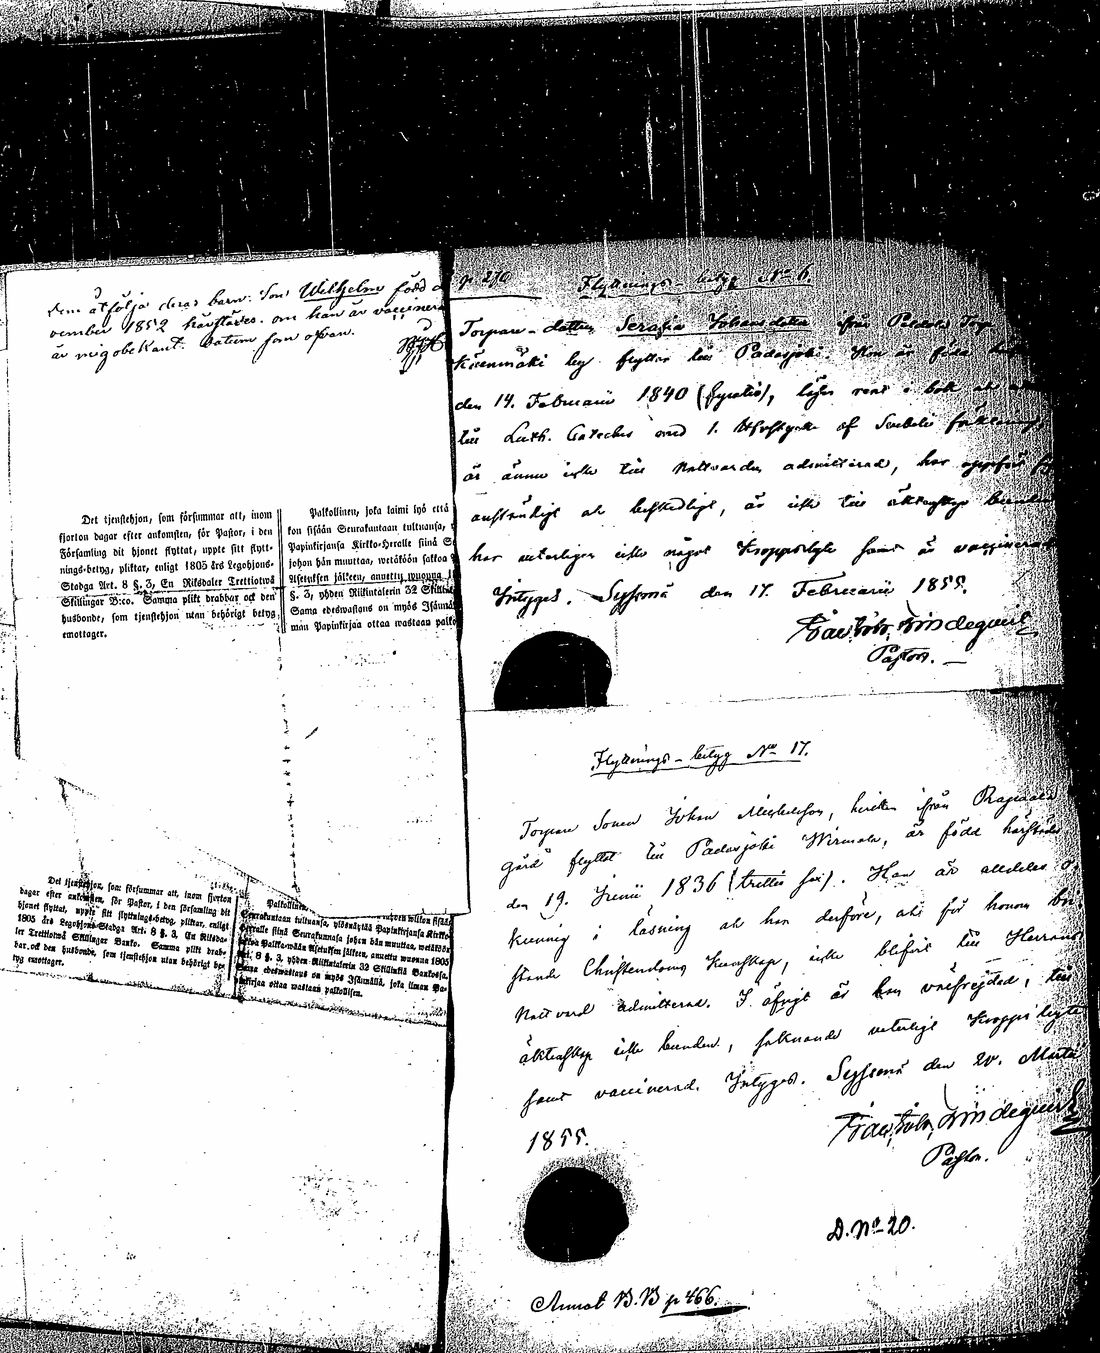 Dem åtfölja deras barn: Son Wilhelm född
vember 1852 härstädes. om han är vaccinerad
är mig obekant. Datum som ofvan.
Det tjenstehjon, som försummar att, inom
fjorton dagar efter ankomsten, för Pastor, i den
Församling dit hjonet flyttat, uppte sitt flytt-
nings-betyg, pliktar, enligt 1805 års Legohjons-
Stadga Art. 8 §. 3, En Riksdaler Trettiotwå
Skillingar B:co. Samma plikt drabbar ock den
husbonde, som tjenstehjon utan behörigt betyg
emottager.
Palkollinen, joka laimi lyö että
kon sisään Seurakuntaan tultuansa,
Papinkirjansa Kirkko-Herralle siinä
johon hän muuttaa, wetäköön sakkoa
Asetuksen jälkeen, annettu wuonna
§. 3, yhden Riikintalerin 32 Skillinkiä
Sama edeswastaus on myös Isännällä
män Papinkirjaa ottaa wastaan palko
Det tjenstehjon, som försummar att, inom fjorton
dagar efter ankomsten, för Pastor, i den församling dit
hjonet flyttat, uppte sitt flyttnings-betyg, pliktar, enligt
1805 års Legohjons-Stadga Art. 8 §. 3, En Riksda-
ler Trettiotwå Skillinger Banko. Samma plikt drab-
bar ock den husbonde, som tjenstehjon utan behörigt be-
tyg emottager.
Palkollinen
Seurakuntaan tultuansa, ylösnäyttää Papinkirjansa Kirkko-
Herralle siinä Seurakunnassa johon hän muuttaa, wetäköön
sakkoa Palkkawään Asetuksen jälkeen, annettu wuonna 1805
Art. 8 §. 3, yhden Riikintalerin 32 Skillinkiä Bankossa.
Sama edeswastaus on myös Isännällä, joka ilman Pa-
pinkirjaa ottaa wastaan palkollisen.
p. 270
Flyttnings-betyg No 6.
Torpare-dotter Serafia Johansdotter från
by flyttar till Padasjoki. Hon är född
den 14. Februarii 1840 (fyratio), läser rent i bok
till Luth. Cateches med 1. Stycke af Svebelii förklaring,
är ännu icke till Nattvarden admitterad, har uppfört sig
anständigt och beskedligt, är icke till äktenskap bunden
har veterligen icke något Kroppslyte samt är vaccinerad
Intygas. Sysmä den 17. Februarii 1855.
Lindequist
Pastor.
Flyttnings-betyg No 17.
Torpare Sonen Johan Michelsson, hvilken ifrån
gård flyttat till Padasjoki Wirmala, är född härstädes
den 19. Junii 1836 (trettio sex). Han är alldeles o-
kunnig i läsning och har derföre, och för honom bri-
stande Christendoms Kunskap, icke blifvit till Herrans
Nattvard admitterad. I öfrigt är han välfrejdad, till
äktenskap icke bunden, saknande veterligt Kroppslyte
samt vaccinerad. Intygas. Sysmä den 20. Martii
1855.
Lindequist
Pastor.
D. No 20.
Annot B.B p 466.